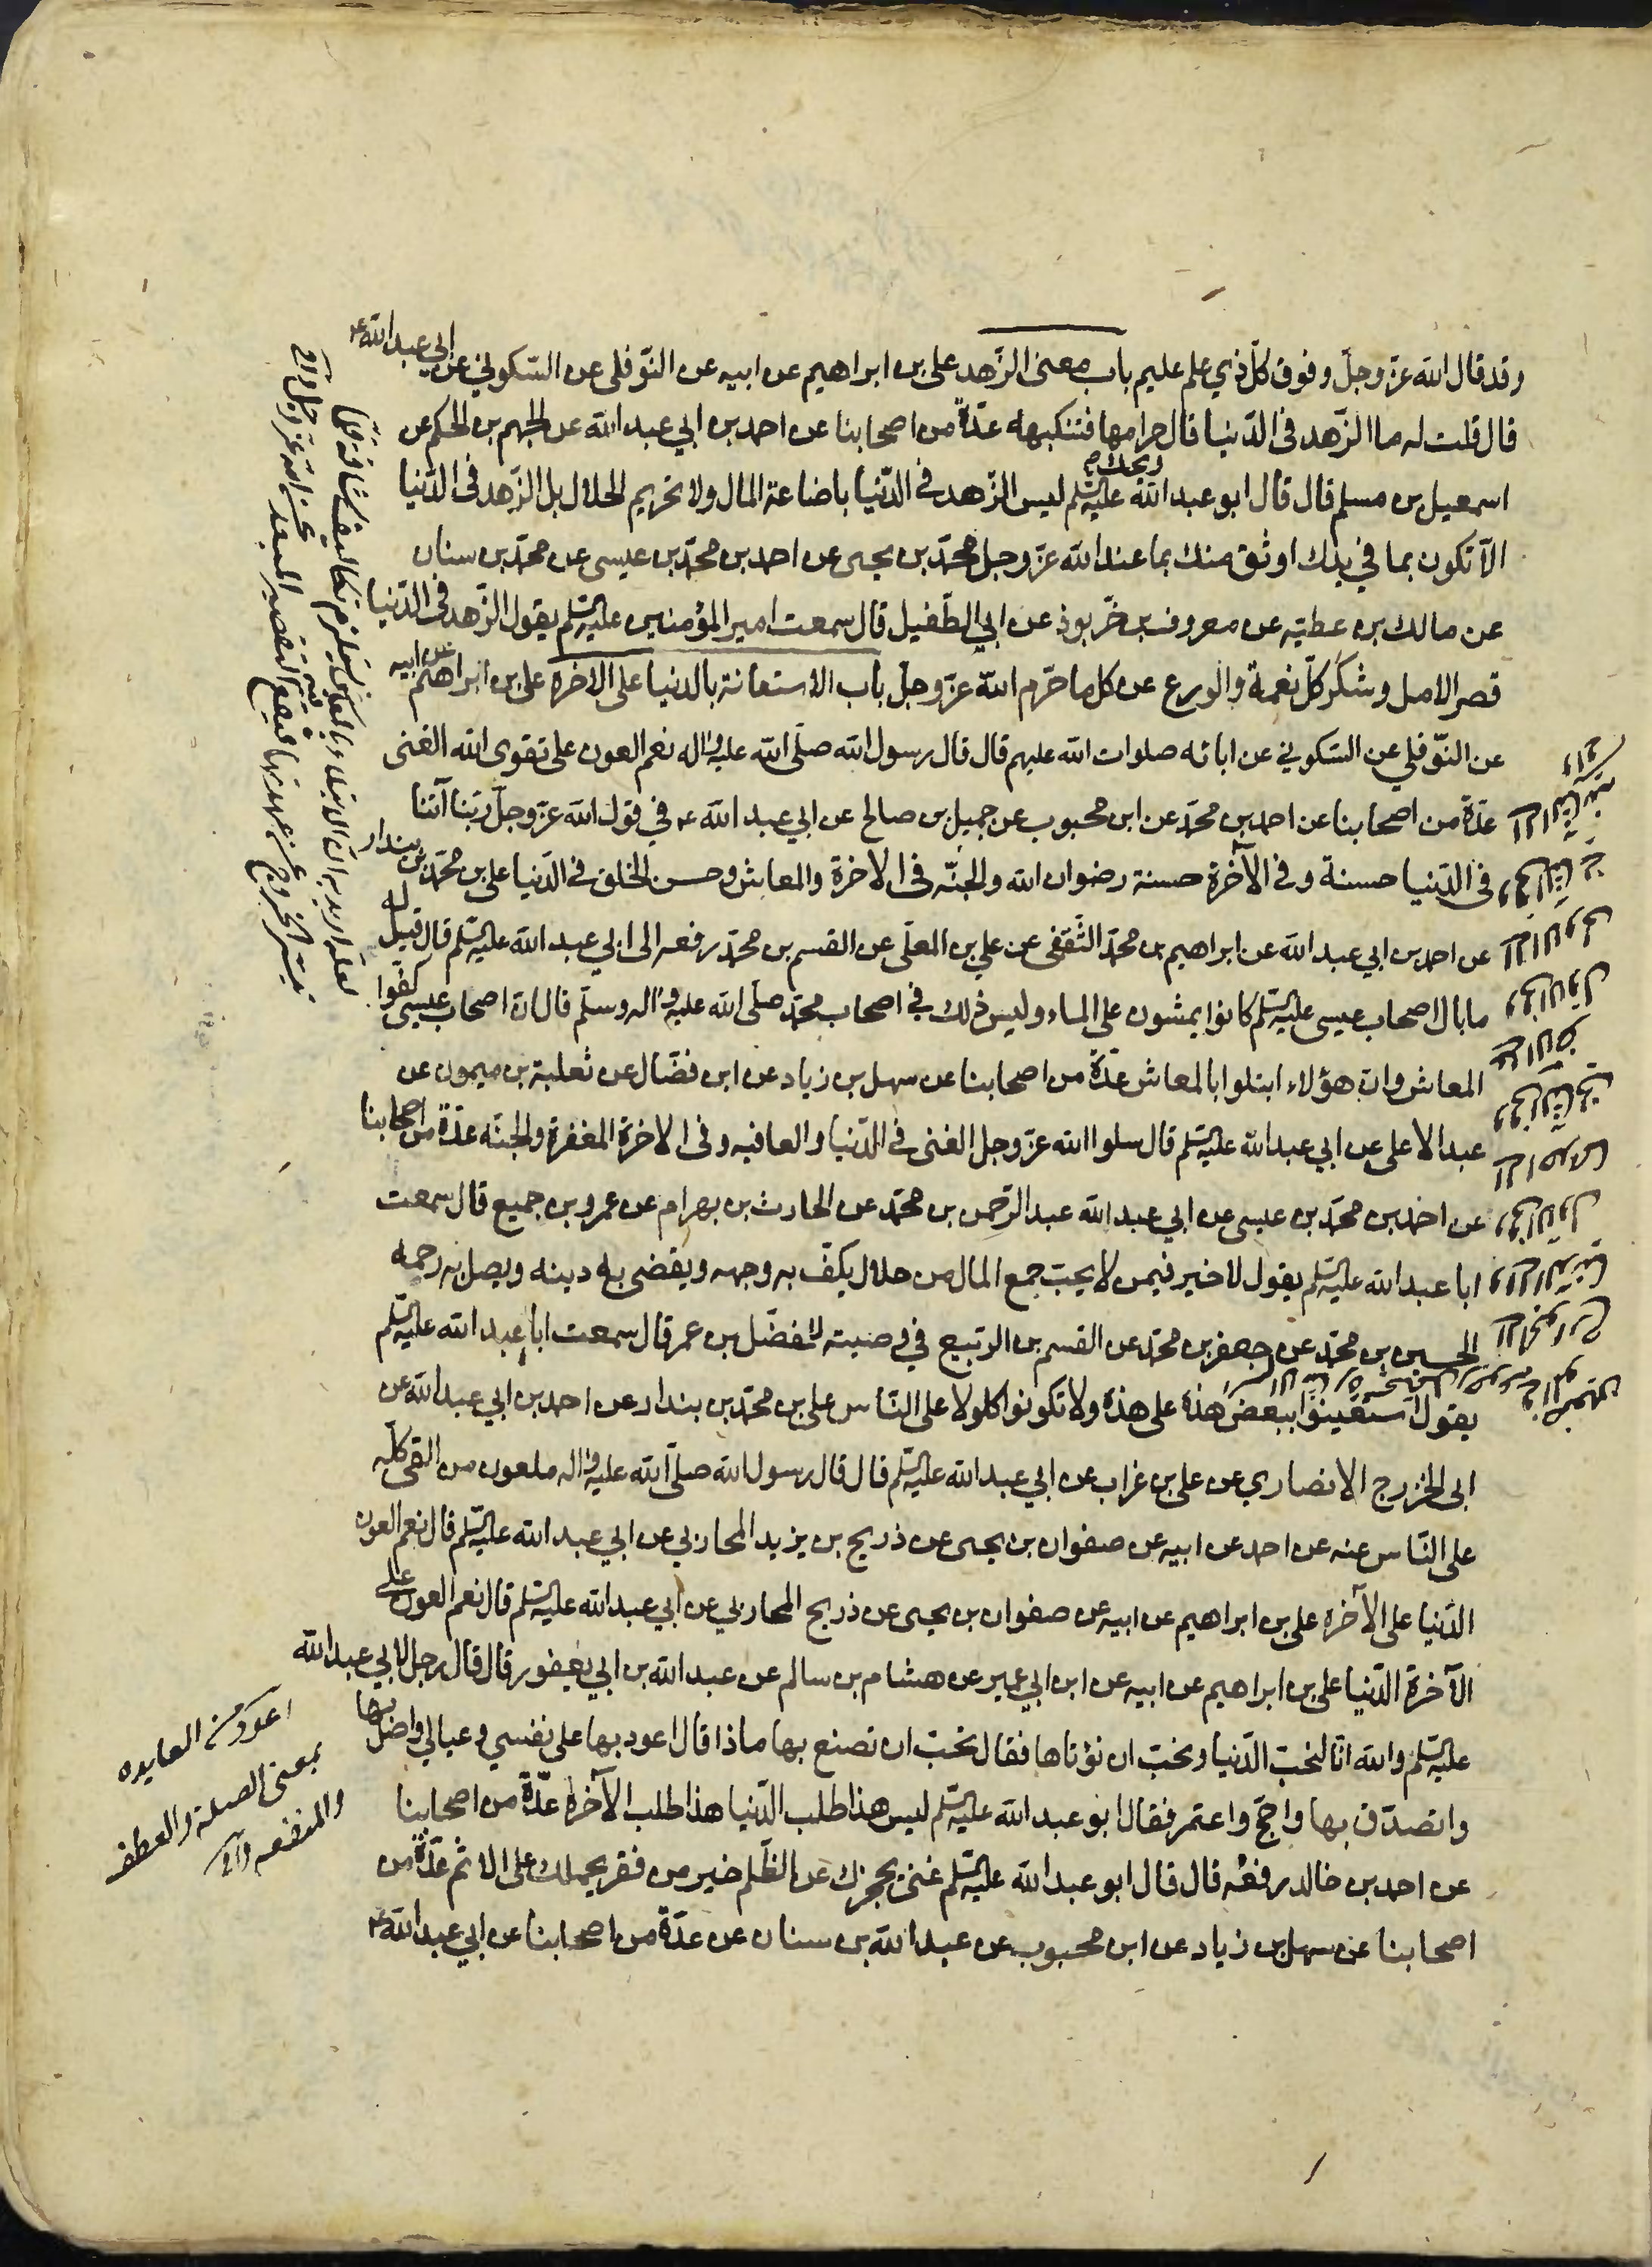 وقد قال الله عزّ وجلّ وفوق كلّ ذي علم عليم باب معنى الزّهد علي بن ابراهيم عن ابيه عن النّوفلى عن السّكوني عن ابي عبد الله ع
قال قلت له ما الزّهد فى الدّنيا قال حرامها فتنكبه عدّة من اصحابنا عن احمد بن ابي عبد الله عن الجهم بن الحكم عن
اسمعيل بن مسلم قال قال ابو عبد الله عليه السّلم ليس الزّهد فى الدّنيا باضاعة المال ولا تحريم الحلال بل الزّهد فى الدّنيا
الّا تكون بما في يدك اوثق منك بما عند الله عزّ وجل محمّد بن يحيى عن احمد بن محمّد بن عيسى عن محمّد بن سنان
عن مالك بن عطيّه عن معروف بن خرّبوذ عن ابي الطّفيل قال سمعت امير المؤمنين عليه السّلم يقول الزّهد فى الدّنيا
قصر الامل وشكر كلّ نعمة والورع عن كل ما حرّم الله عزّ وجلّ باب الاستعانة بالدنيا على الاخرة علي بن ابراهيم عن ابيه
عن النّوفلي عن السّكوني عن ابائه صلوات الله عليهم قال قال رسول الله صلّى الله عليه واله نعم العون على تقوى الله الغنى
عدّة من اصحابنا عن احمد بن محمّد عن ابن محبوب عن جميل بن صالح عن ابي عبد الله ع في قول الله عزّ وجلّ ربّنا آتنا
فى الدّنيا حسنة وفى الآخرة حسنة رضوان الله والجنّه فى الاخرة والمعاش وحسن الخلق فى الدّنيا علي بن محمّد بن بندار
عن احمد بن ابي عبد الله عن ابراهيم بن محمّد الثّقفى عن علي بن المعلّى عن القسم بن محمّد رفعه الى ابي عبد الله عليه السّلم قال قيل له
ما بال اصحاب عيسى عليه السّلم كانوا يمشون على الماء وليس ذلك في اصحاب محمّد صلّى الله عليه واله وسلّم قال انّ اصحاب عيسى كفوا
المعاش وانّ هؤلاء ابتلوا بالمعاش عدّة من اصحابنا عن سهل بن زياد عن ابن فضّال عن ثعلبة بن ميمون عن
عبد الاعلى عن ابي عبد الله عليه السّلم قال سلوا الله عزّ وجل الغنى في الدّنيا والعافيه وفى الاخرة المغفرة والجنّه عدّة من اصحابنا
عن احمد بن محمّد بن عيسى عن ابي عبد الله عبد الرّحمن بن محمّد عن الحارث بن بهرام عن عمرو بن جميع قال سمعت
ابا عبد الله عليه السّلم يقول لا خير فيمن لا يحبّ جمع المال من حلال يكفّ به وجهه ويقضى به دينه ويصل به رحمه
الحسين بن محمّد عن جعفر بن محمّد عن القسم بن الرّبيع في وصيته للمفضّل بن عمر قال سمعت ابا عبد الله عليه السّلم
يقول استعينوا ببعض هذه على هذه ولا تكونوا كلولا على النّاس علي بن محمّد بن بندار عن احمد بن ابي عبد الله عن
ابى الخزرج الانصاري عن علي بن غراب عن ابي عبد الله عليه السّلم قال قال رسول الله صلّى الله عليه واله ملعون من القى كلّه
على النّاس عنه عن احمد عن ابيه عن صفوان بن يحيى عن ذريح بن يزيد المحاربي عن ابي عبد الله عليه السّلم قال نعم العون
الدّنيا على الآخره علي بن ابراهيم عن ابيه عن صفوان بن يحيى عن ذريح المحاربي عن ابي عبد الله عليه السّلم قال نعم العون على
الآخرة الدّنيا علي بن ابراهيم عن ابيه عن ابن ابي عمير عن هشام بن سالم عن عبد الله بن ابي يعفور قال قال رجل لابي عبد الله
عليه السّلم والله انّا لنحبّ الدّنيا ونحبّ ان نؤتاها فقال تحبّ ان تصنع بها ماذا قال اعود بها على نفسي وعيالي واصل بها
واتصدّق بها واحجّ واعتمر فقال ابو عبد الله عليه السّلم ليس هذا طلب الدّنيا هذا طلب الآخرة عدّة من اصحابنا
عن احمد بن خالد رفعه قال قال ابو عبد الله عليه السّلم غنى يحجزك عن الظّلم خير من فقر يحملك على الاثم عدّة من
اصحابنا عن سهل بن زياد عن ابن محبوب عن عبد الله بن سنان عن عدّة من اصحابنا عن ابي عبد الله ع
ويحك
اعود من العايده
بمعنى الصلة والعطف
والمنفعه